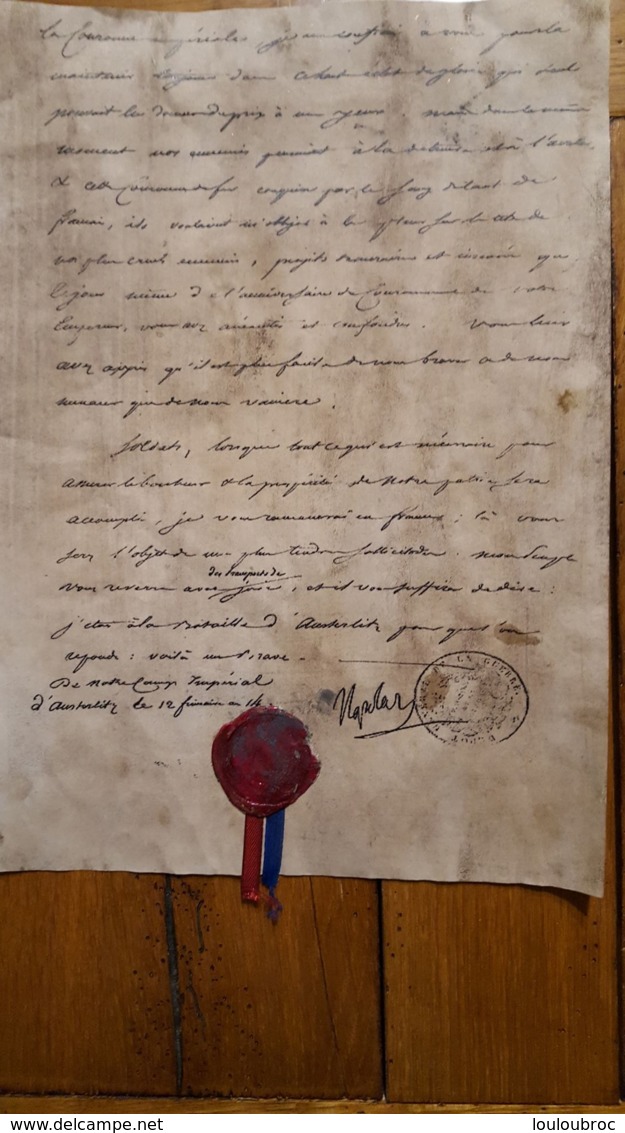 la Couronne impériale, je ne voudrais avoir pour la
maintenir toujours dans ce haut état de gloire qui seul
pouvait lui donner de prix à mes yeux. mais dans le même
moment nos ennemis pensaient à la détruire et à l'avilir,
& cette Couronne de fer conquise par le sang de tant de
français, ils voulaient m'obliger à la placer sur la tête de
nos plus cruels ennemis, projets téméraires et insensés que
le jour même de l'anniversaire du Couronnement de votre
Empereur, vous avez anéantis et confondus. Vous leur
avez appris qu'il est plus facile de nous braver & de nous
menacer que de nous vaincre.
Soldats, lorsque tout ce qui est nécessaire pour
assurer le bonheur & la prospérité de notre patrie sera
accompli, je vous ramenerai en france; là vous
serez l'objet de mes plus tendres sollicitudes. mon Peuple
des transports de
vous reverra avec joie, et il vous suffira de dire:
j'etais à la Bataille d'Austerlitz pour que l'on
reponde: voilà un Brave.
De Notre Camp Impérial
d'Austerlitz le 12 frimaire an 14
Napoleon
DE LA GUERRE
DEPOT
delcampe.net
louloubroc